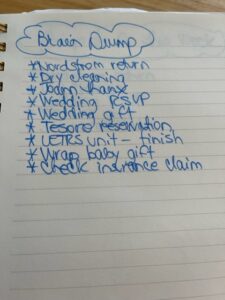 Brain Dump
* Nordstrom return
* Dry cleaning
* Joann thanx
* Wedding RSVP
* Wedding gift
* Tesore reservation
* LETRS unit - finish
* Wrap baby gift
* Check insurance claim